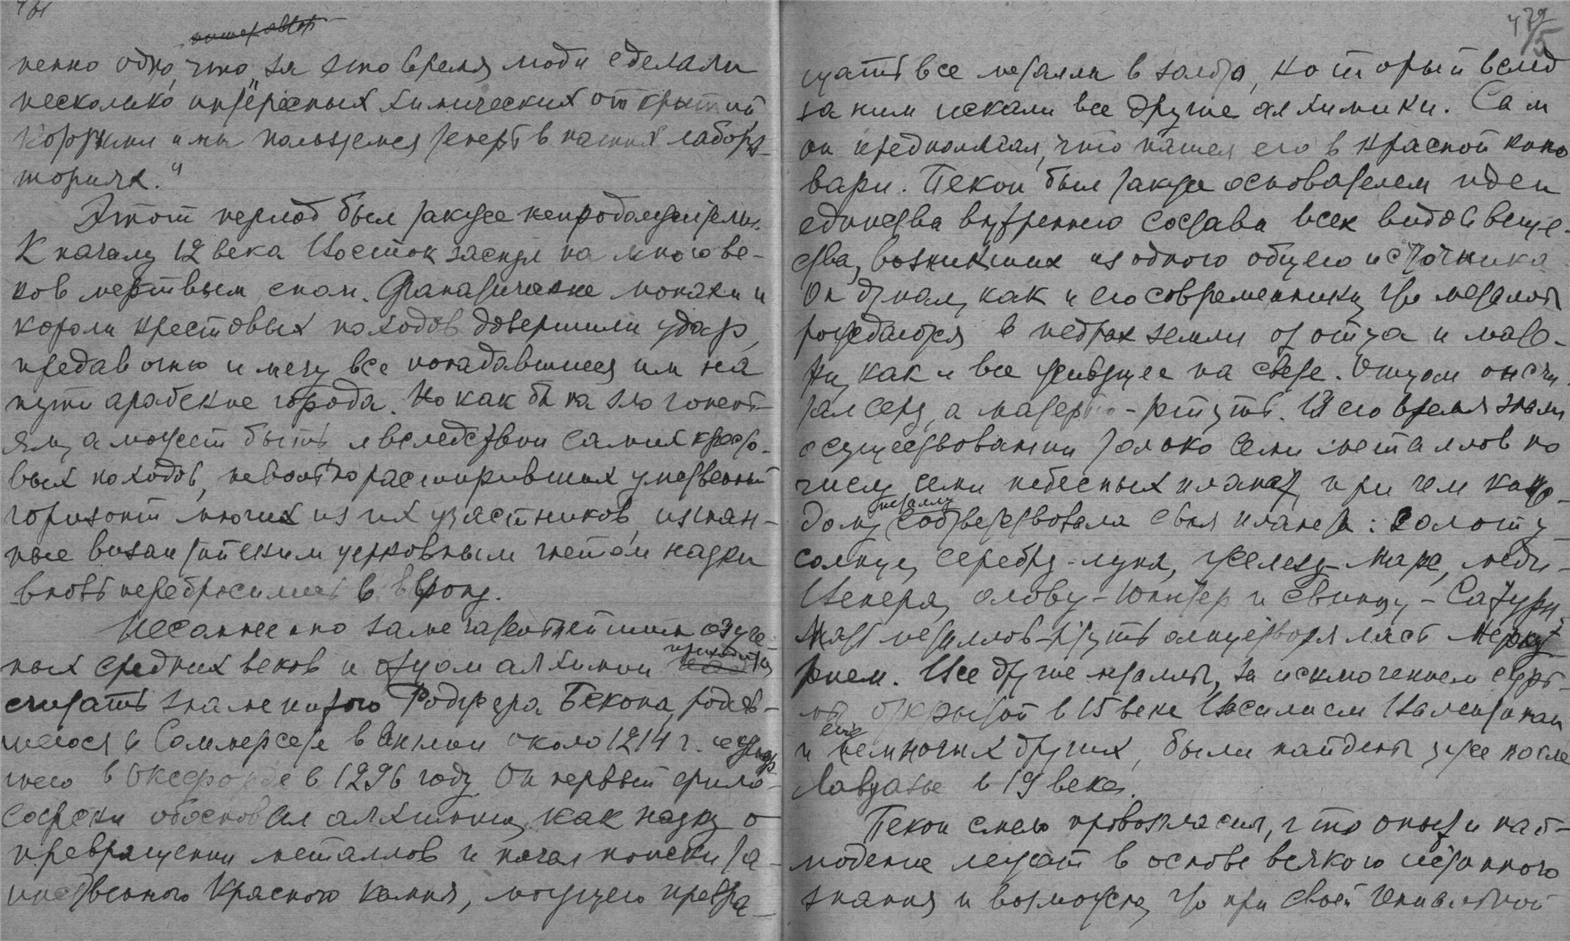 пенно одно, что за это время люди сделали
несколько интересных химических открытий,
которыми и мы пользуемся теперь в наших лабора-
ториях."
Этот период был также непродолжителен.
К началу 12 века Восток заснул на много ве-
ков мертвым сном. Фанатические монахи и
короли крестовых походов довершили удар,
предав огню и мечу все попадавшиеся им на
пути арабские города. Но как бы на зло гонени-
ям, а может быть и вследствии самих кресто-
вых походов, невольно расширивших умственный
горизонт многих из их участников, изгнан-
ные византийским церковным гнетом науки
вновь перебросились в Европу.
Несомненно замечательнейшим из уче-
ных средних веков и отцом алхимии приходится
считать знаменитого Роджера Бекона, родив-
шегося в Соммерсете в Англии около 1214 г. и умер-
шего в Оксфорде в 1296 году. Он первый фило-
софски обосновал алхимию, как науку о
превращении металлов и начал поиски та-
инственного красного камня, могущего превра-
479/5
щать все металлы в золото, который вслед
за ним искали все другие алхимики. Сам
он предполагал, что нашел его в красной кино
вари. Бекон был также основателем идеи
единства внутреннего состава всех видов веще-
ства, возникших из одного общего источника.
Он думал, как и его современники, что металлы
рождаются в недрах земли от отца и мате-
ри, как и все живущее на свете. Отцом он счи-
тал серу, а матерью - ртуть. В его время знали
о существовании только семи металлов по
числу семи небесных планет, при чем каж-
дому металлу соответствовала своя планета: золоту -
солнце, серебру - луна, железу - Марс, меди -
Венера, олову - Юпитер и свинцу - Сатурн.
Мать металлов - ртуть олицетворялась Мерку-
рием. Все другие металлы, за исключением сурь-
мы открытой в 15 веке Василием Валентином
и еще немногих других, были найдены уже после
Лавуазье в 19 веке.
Бекон смело провозгласил, что опыт и наб-
людение лежат в основе всякого истинного
знания и возможно, что при своей гениальной